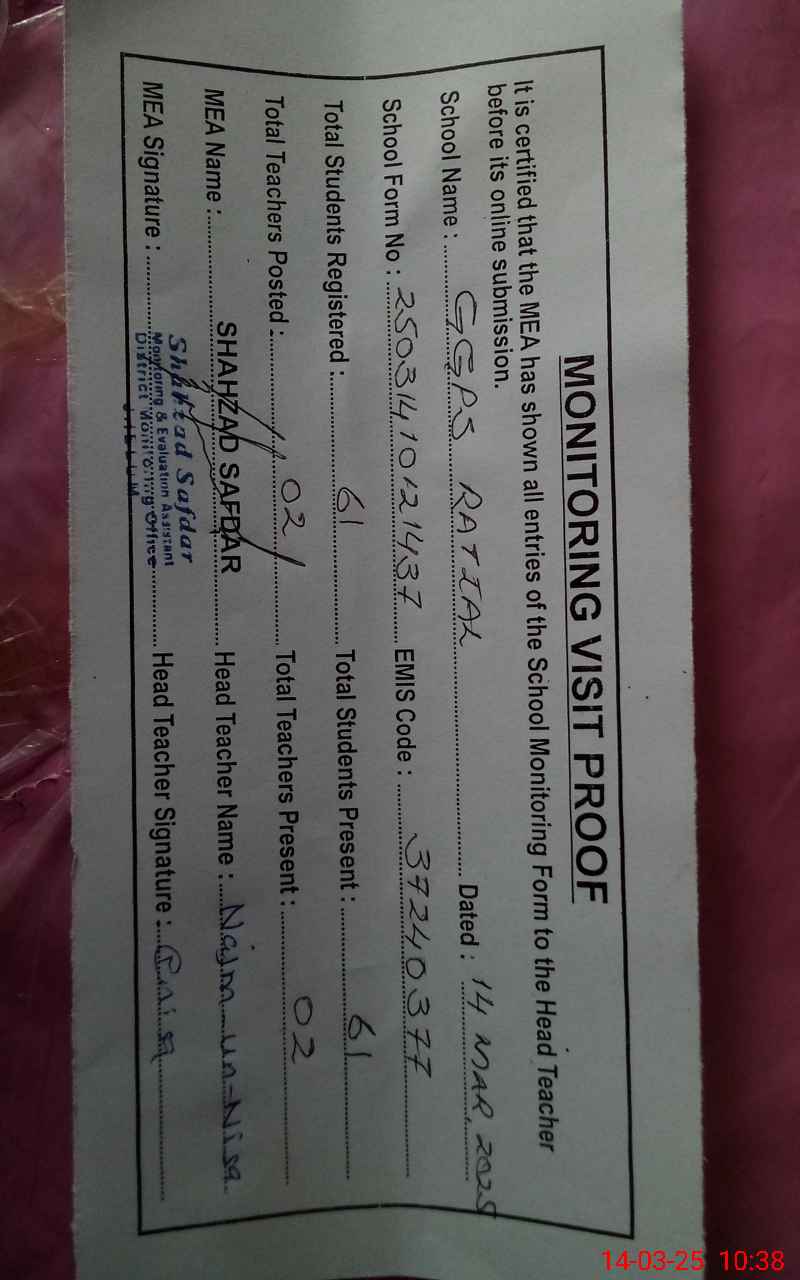 MONITORING VISIT PROOF
It is certified that the MEA has shown all entries of the School Monitoring Form to the Head Teacher
before its online submission.
School Name : GGPS RATIAL Dated : 14 MAR, 2025
School Form No : 25031410121437 EMIS Code : 37240377
Total Students Registered : 61 Total Students Present : 61
Total Teachers Posted : 02 Total Teachers Present : 02
MEA Name : SHAHZAD SAFDAR Head Teacher Name : Najm-un-Nisa
MEA Signature : Head Teacher Signature :
Shahzad Safdar
Monitoring & Evaluation Assistant
District Monitoring Office
JHELUM
14-03-25 10:38